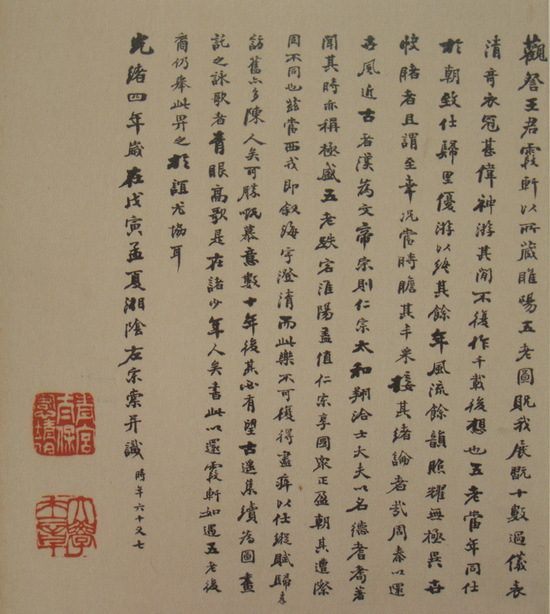 觀詧王君霞軒以所藏睢陽五老圖貺我展翫十數過儀表
清奇衣冠甚偉神游其閒不復作千載後想也五老當年同仕
於朝致仕歸里優游以終其餘年風流餘韻照耀無極異世
收賭者且謂至幸況當時瞻其丰采接其緒論者哉周秦以還
世風近古者漢為文帝宋則仁宗太和翔洽士大夫以名德耆耇著
聞其時亦稱極盛五老跌宕淮陽孟值仁宗享國眾正盈朝其遭際
固不同也茲當西戎即敘海宇澄清而此樂不可復得盡瘁以仕縱賦歸來
訪舊亦多陳人矣可勝慨慕意數十年後其必有望古遙集續為圖畫
託之詠歌者青眼高歌是在諸少年人矣書此以還霞軒如遇五老後
裔仍舉此畀之於誼尤協耳
光緒四年歲在戊寅孟夏湘陰左宗棠并識時年六十又七
青宮太保恪靖侯
大學士章